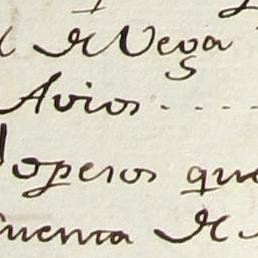 de Vega
Avios ....
opesos que
uenta de